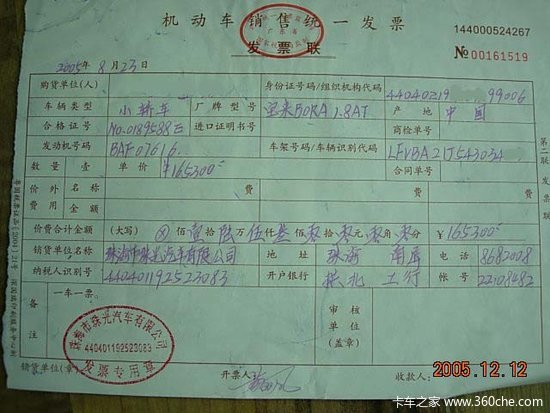 机动车销售统一发票
发票联
144000524267
№00161519
2005年8月23日
购货单位(人) 身份证号码/组织机构代码 44040219 99006
车辆类型 小轿车 厂牌型号 宝来BORA 1.8AT 产地 中国
合格证号 No.0189538 进口证明书号 商检单号
发动机号码 BAF07616 车架号码/车辆识别代码 LFVBA21J543034
数量 壹 单价 ¥165300 合同单号
价外费用 名称 费 费 费
金额
价费合计金额 (大写) ⊗佰壹拾陆万伍仟叁佰零拾零元零角零分 ¥165300
销货单位名称 珠海市珠光汽车有限公司 地址 珠海 南屏 电话 8682008
纳税人识别号 440401192523083 开户银行 拱北 工行 帐号 22108482
备注 一车一票
审核单位(盖章)
珠海市珠光汽车有限公司
440401192523083
发票专用章
销货单位(章) 开票人 收款人:
第二联 发票联
2005.12.12
卡车之家 www.360che.com